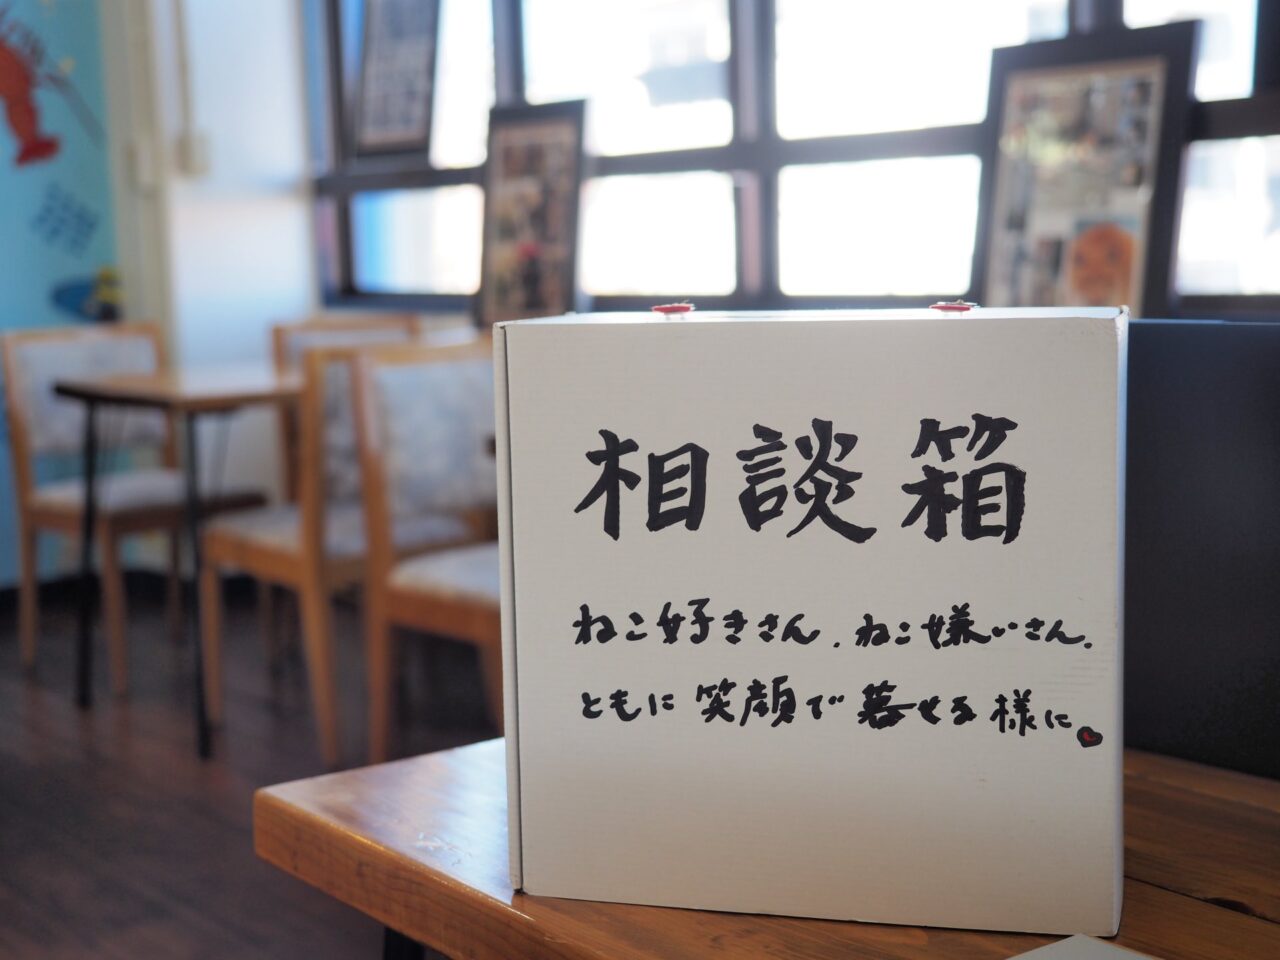 相談箱
ねこ好きさん、ねこ嫌いさん。
ともに笑顔で暮せる様に